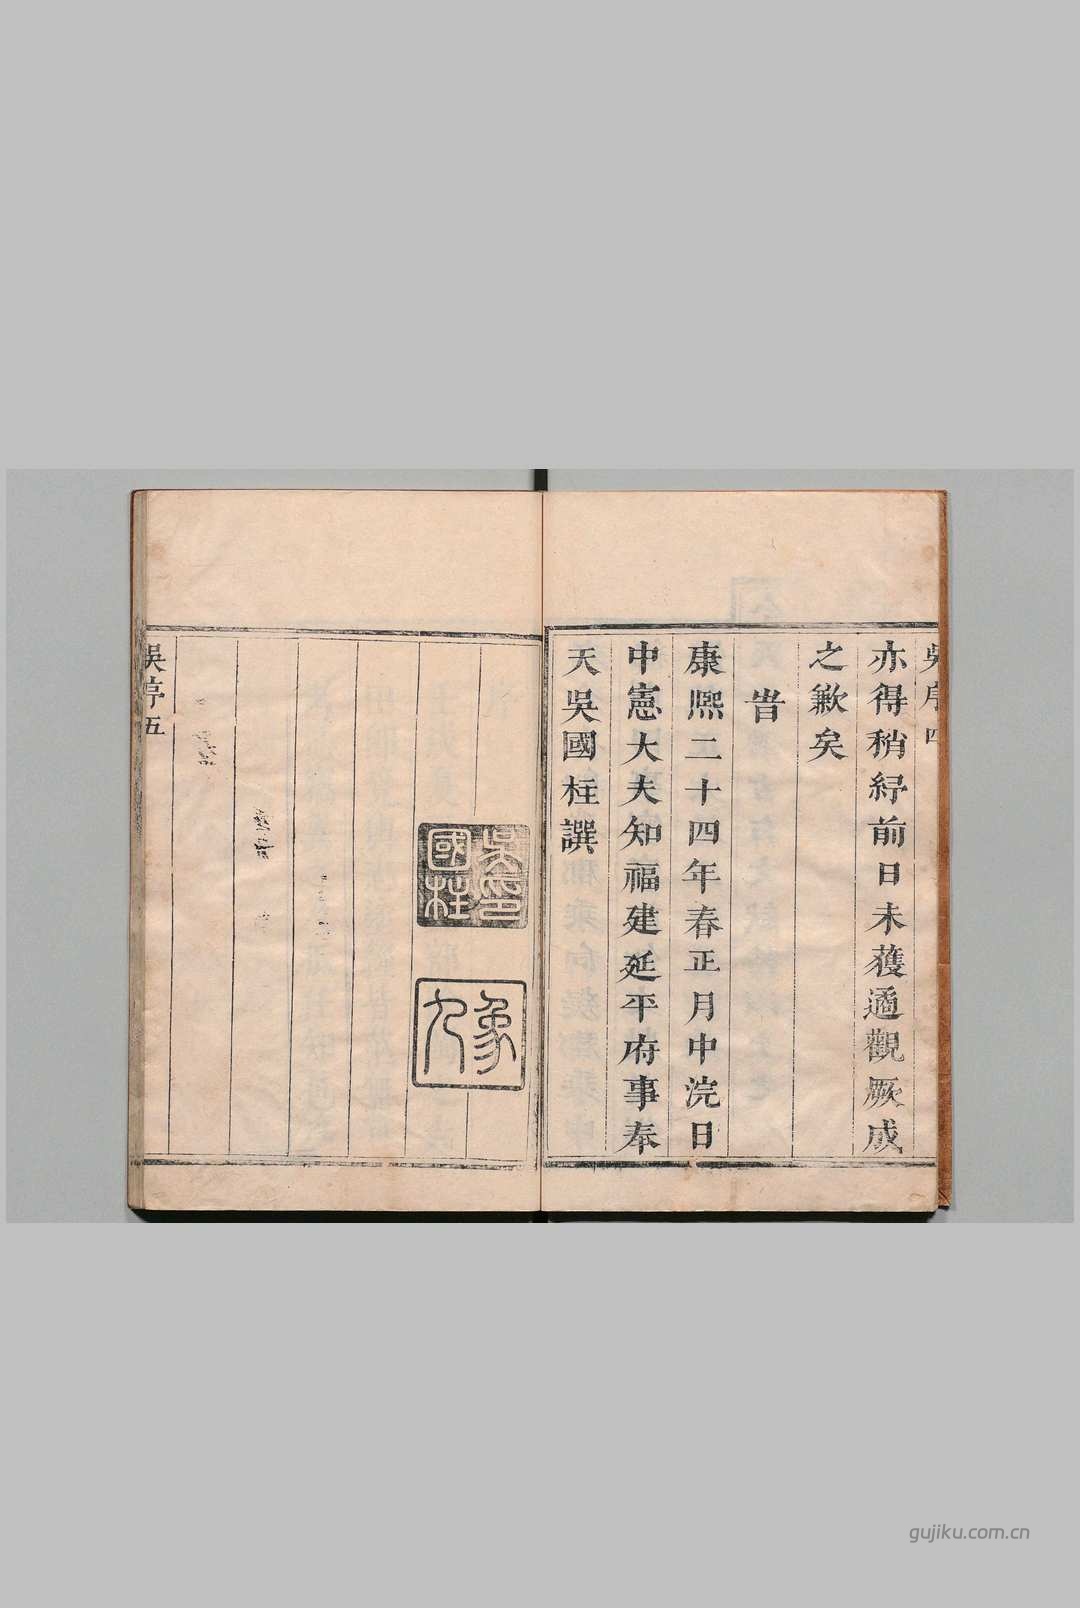 吳序四
亦得稍紓前日未獲遹觀厥成
之歉矣
旹
康熙二十四年春正月中浣日
中憲大夫知福建延平府事奉
天吳國柱譔
吳印
國柱
象
九
吳序五
gujiku.com.cn